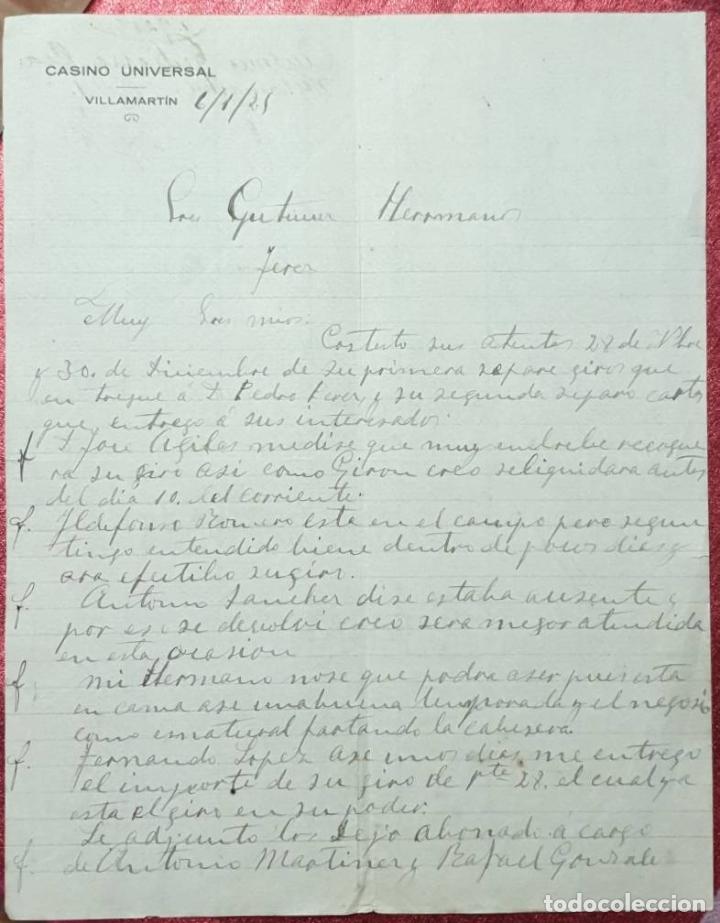 CASINO UNIVERSAL
VILLAMARTÍN
Sres Gutierrez Hermanos
Jerez
Muy Sres mios:
Contesto sus atentas 28 de
y 30. de Diciembre de su primera separe giros que
entregue á D Pedro Perez, y su segunda separo cartas
que entrego á sus interesados.
D Jose Agilar medise que muy enbrebe recogue
ra su giro asi como Giron creo seliquidara antes
del dia 10. del corriente.
f. Yldefonso Romero esta en el campo pero segun
tingo entendido biene dentro de pocos dias y
ara efectibo sugiro.
f. Antonio Sancher dise estaba ausente y
por eso se debolvi creo sera megor atendida
en esta ocasion
f. mi Hermano nose que podra aser pues esta
en cama ase unabuena temporada y el negosio
como esnatural fartando la cabesera.
f. Fernando Lopez ase unos dias me entrego
el importe de su giro de Pte 28. el cual ya
esta el giro en su poder.
Le adjunto los abonado á cargo
f. de Antonio Martiner y Rafael Gonzale
todocoleccion.net